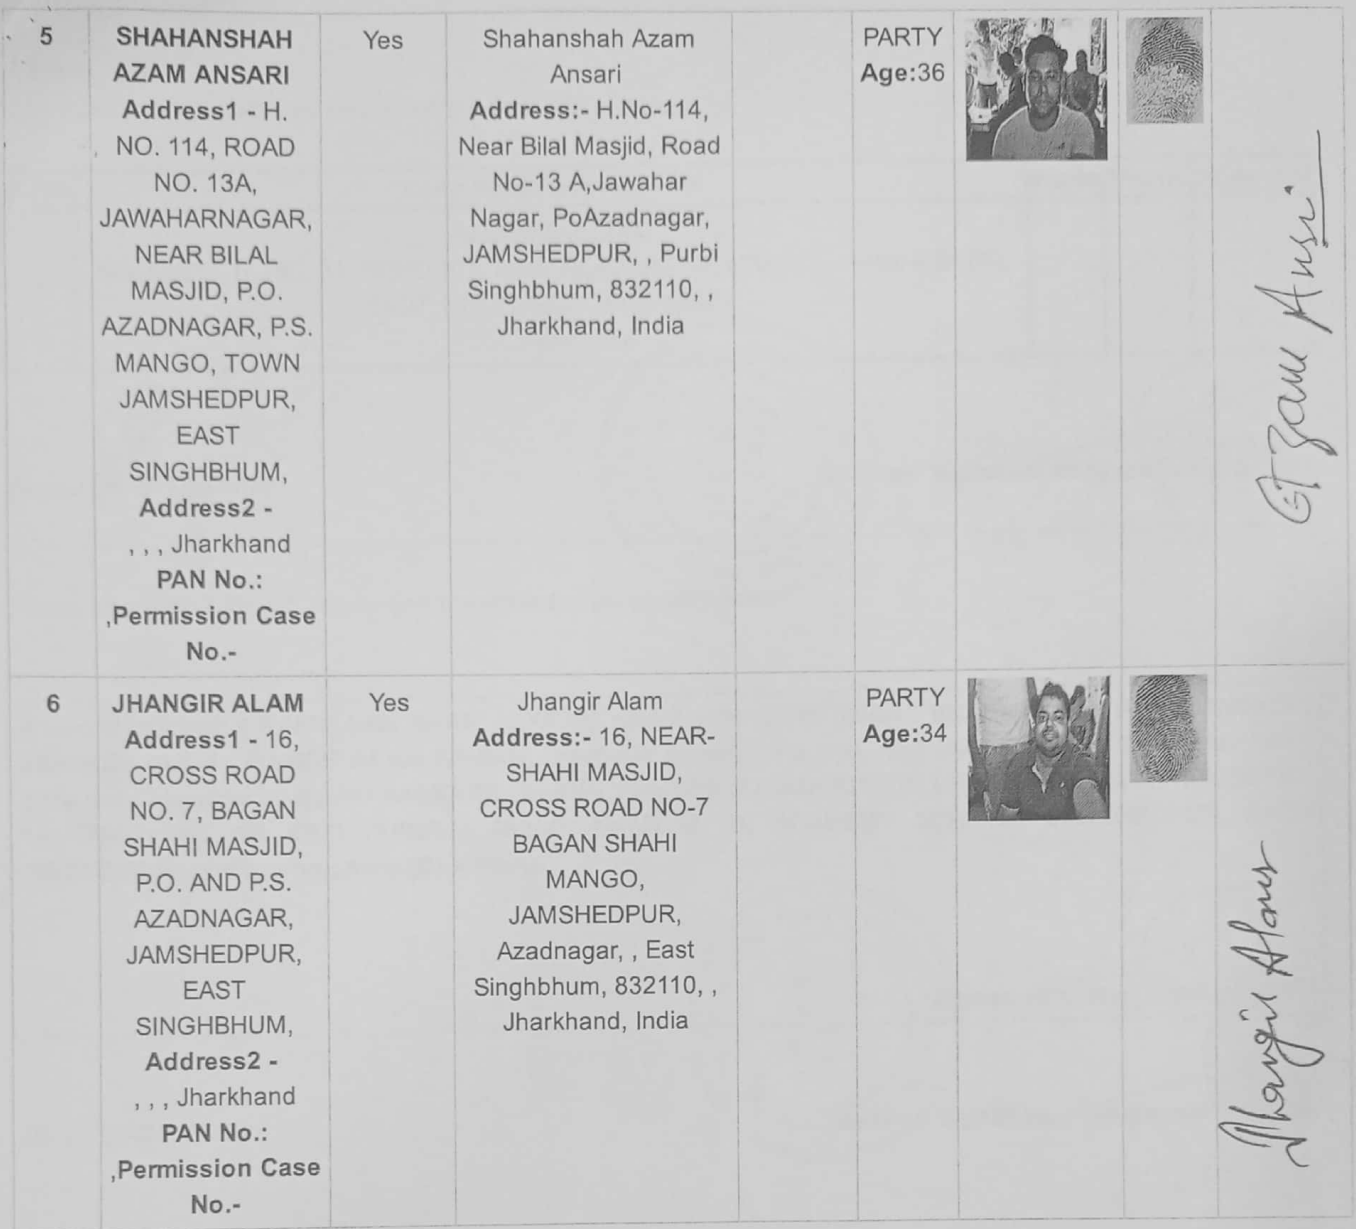 5
SHAHANSHAH
AZAM ANSARI
Address1 - H.
NO. 114, ROAD
NO. 13A,
JAWAHARNAGAR,
NEAR BILAL
MASJID, P.O.
AZADNAGAR, P.S.
MANGO, TOWN
JAMSHEDPUR,
EAST
SINGHBHUM,
Address2 -
, , , Jharkhand
PAN No.:
,Permission Case
No.-
Yes
Shahanshah Azam
Ansari
Address:- H.No-114,
Near Bilal Masjid, Road
No-13 A,Jawahar
Nagar, PoAzadnagar,
JAMSHEDPUR, , Purbi
Singhbhum, 832110, ,
Jharkhand, India
PARTY
Age:36
6
JHANGIR ALAM
Address1 - 16,
CROSS ROAD
NO. 7, BAGAN
SHAHI MASJID,
P.O. AND P.S.
AZADNAGAR,
JAMSHEDPUR,
EAST
SINGHBHUM,
Address2 -
, , , Jharkhand
PAN No.:
,Permission Case
No.-
Yes
Jhangir Alam
Address:- 16, NEAR-
SHAHI MASJID,
CROSS ROAD NO-7
BAGAN SHAHI
MANGO,
JAMSHEDPUR,
Azadnagar, , East
Singhbhum, 832110, ,
Jharkhand, India
PARTY
Age:34